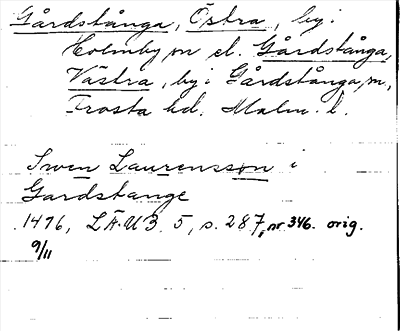 Gårdstånga, Östra, by i
Holmby sn el. Gårdstånga,
Västra, by i Gårdstånga sn,
Frosta hd. Malm. l.
Swen Laurensson i
Gardstange
1476, LÄ.U3 5, s. 287, nr 346. orig.
9/11